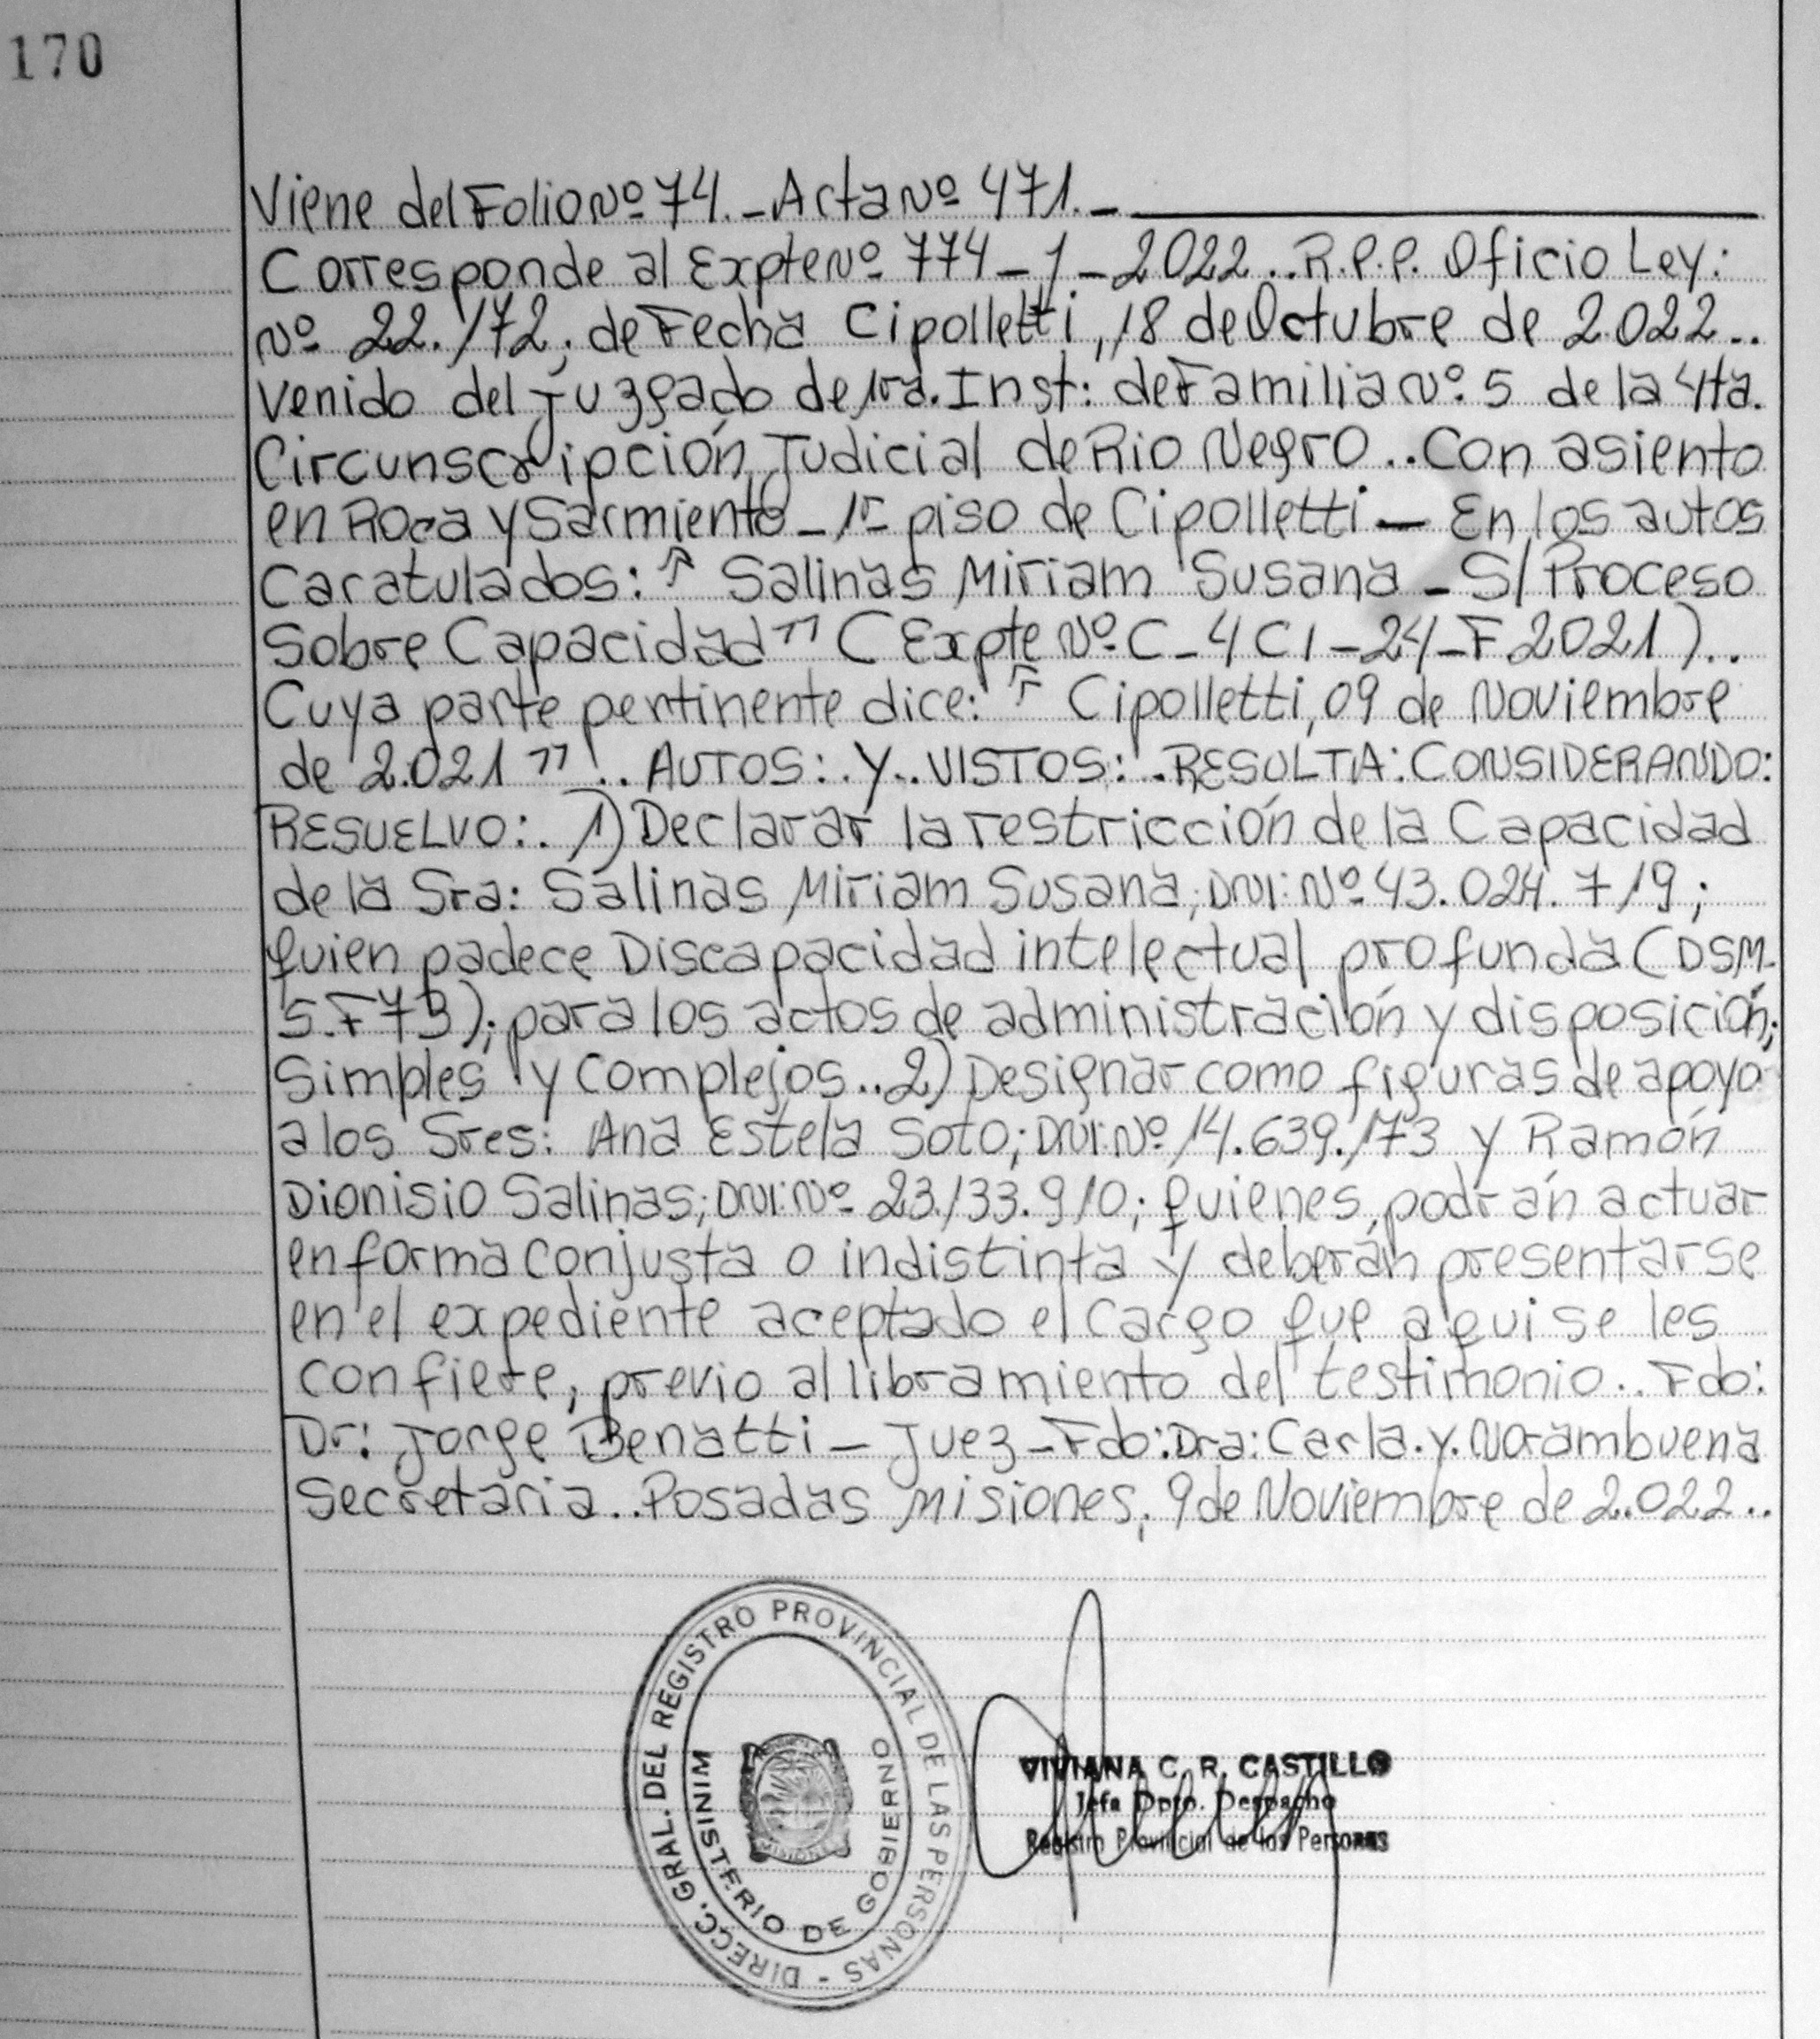 170
Viene del Folio Nº 74. - Acta Nº 471. -
Corresponde al Expte Nº 774-1-2022.. R.P.P. Oficio Ley:
Nº 22.172; de Fecha Cipolletti, 18 de Octubre de 2.022..
Venido del Juzgado de 1ra. Inst: de Familia Nº: 5 de la 4ta.
Circunscripción Judicial de Rio Negro.. Con asiento
en Roca y Sarmiento - 1º piso de Cipolletti — En los autos
Caratulados: " Salinas Miriam Susana - S/ Proceso
Sobre Capacidad" (Expte Nº C-4CI-24-F2021)..
Cuya parte pertinente dice: " Cipolletti, 09 de Noviembre
de 2.021"!.. AUTOS: Y.. VISTOS:. RESULTA: CONSIDERANDO:
RESUELVO:. 1) Declarar la restricción de la Capacidad
de la Sra: Salinas Miriam Susana; DNI: Nº 43.024.719;
quien padece Discapacidad intelectual profunda (DSM-
5.F73); para los actos de administración y disposición;
Simples y Complejos.. 2) Designar como figuras de apoyo
a los Sres: Ana Estela Soto; DNI: Nº 14.639.173 y Ramón
Dionisio Salinas; DNI: Nº 23.133.910; quienes, podrán actuar
en forma conjusta o indistinta y deberán presentarse
en el expediente aceptado el Cargo que aqui se les
confiere, previo al libramiento del testimonio.. Fdo:
Dr: Jorge Benatti - Juez - Fdo: Dra: Carla. Y. Norambuena
Secretaria.. Posadas Misiones, 9 de Noviembre de 2.022..
DIRECC. GRAL. DEL REGISTRO PROVINCIAL DE LAS PERSONAS -
MINISTERIO DE GOBIERNO
MISIONES
VIVIANA C. R. CASTILLO
Jefa Dpto. Despacho
Registro Provincial de las Personas